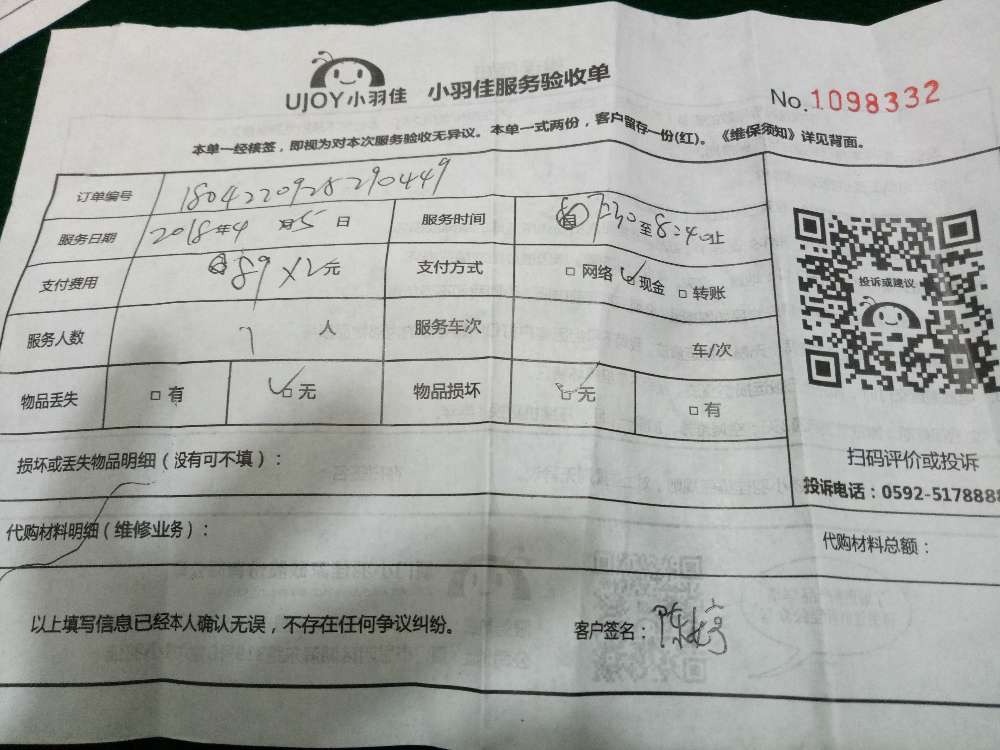 UJOY小羽佳 小羽佳服务验收单
No.1098332
本单一经核签，即视为对本次服务验收无异议。本单一式两份，客户留存一份(红)。《维保须知》详见背面。
订单编号 1804220928290449
服务日期 2018年4月5日 服务时间 7:30至8:40止
支付费用 89×2元 支付方式 □网络 ✓现金 □转账
服务人数 1人 服务车次 车/次
物品丢失 □有 ✓□无 物品损坏 ✓□无 □有
投诉或建议
扫码评价或投诉
投诉电话：0592-5178888
损坏或丢失物品明细（没有可不填）：
代购材料明细（维修业务）：
代购材料总额：
以上填写信息已经本人确认无误，不存在任何争议纠纷。
客户签名：陈婷